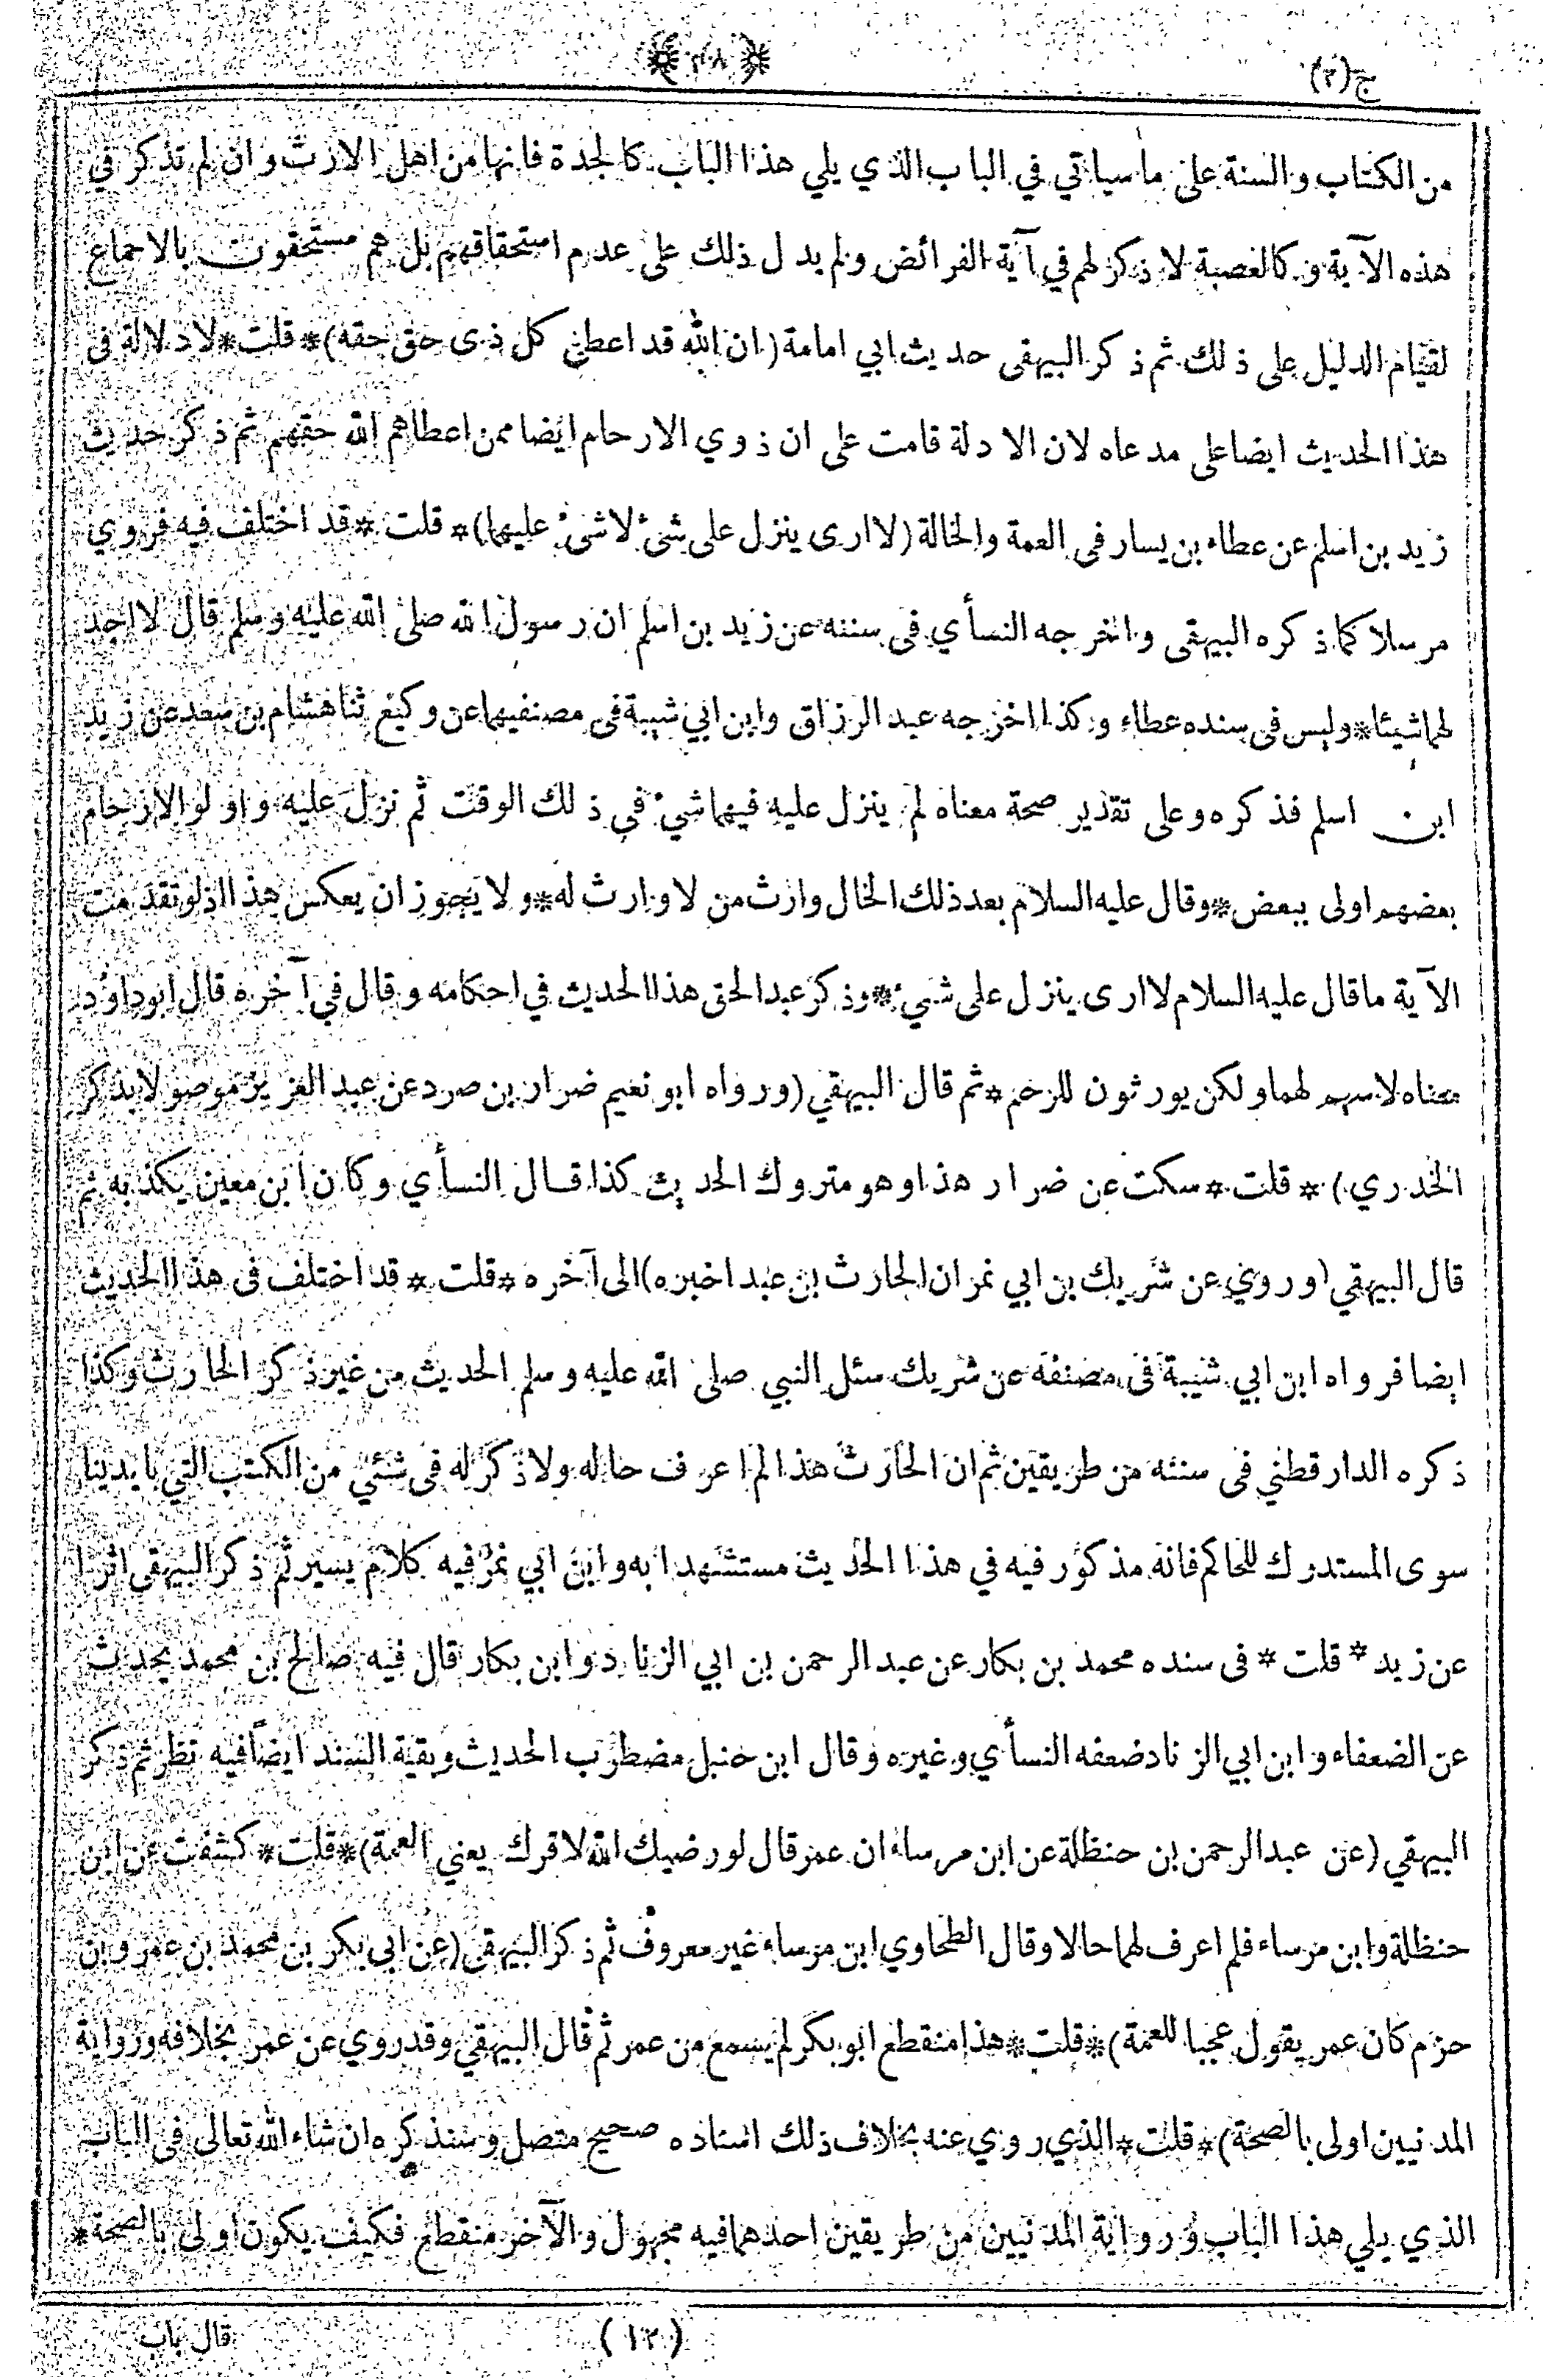 ج(٢)
من الكتاب والسنة على ماسياتي في الباب الذي يلي هذا الباب كالجدة فانها من اهل الارث وان لم تذكر في
هذه الآية وكالعصبة لا ذكر لهم في آية الفرائض ولم يدل ذلك على عدم استحقاقهم بل هم مستحقون بالاجماع
لقيام الدليل على ذلك ثم ذكر البيهقى حديث ابي امامة (ان الله قد اعطى كل ذى حق حقه) * قلت * لادلالة فى
هذا الحديث ايضا على مدعاه لان الادلة قامت على ان ذوي الارحام ايضا ممن اعطاهم الله حقهم ثم ذكر حديث
زيد بن اسلم عن عطاء بن يسار فى العمة والخالة (لا ارى ينزل على شئ لاشئ عليهما) * قلت * قد اختلف فيه فروي
مرسلا كما ذكره البيهقى واخرجه النسأي فى سننه عن زيد بن اسلم ان رسول الله صلى الله عليه وسلم قال لا اجد
لهما شيئا * وليس فى سنده عطاء وكذا اخرجه عبد الرزاق وابن ابي شيبة فى مصنفيهما عن وكيع ثنا هشام بن سعد عن زيد
ابن اسلم فذكره وعلى تقدير صحة معناه لم ينزل عليه فيهما شئ في ذلك الوقت ثم نزل عليه واولو الارحام
بعضهم اولى ببعض * وقال عليه السلام بعد ذلك الخال وارث من لا وارث له * ولا يجوز ان يعكس هذا اذ لو تقدمت
الآية ماقال عليه السلام لا ارى ينزل على شيئ * وذكر عبد الحق هذا الحديث في احكامه وقال في آخره قال ابوداؤد
معناه لاسهم لهما ولكن يورثون للرحم * ثم قال البيهقي (ورواه ابو نعيم ضرار بن صرد عن عبد العزيز موصولا بذكر
الخدري) * قلت * سكت عن ضرار هذا وهو متروك الحديث كذا قال النسأي وكان ابن معين يكذبه ثم
قال البيهقي (وروي عن شريك بن ابي نمر ان الحارث بن عبد اخبره) الى آخره * قلت * قد اختلف فى هذا الحديث
ايضا فرواه ابن ابي شيبة فى مصنفه عن شريك سئل النبي صلى الله عليه وسلم الحديث من غير ذكر الحارث وكذا
ذكره الدارقطني فى سننه من طريقين ثم ان الحارث هذا لم اعرف حاله ولا ذكر له فى شئي من الكتب التي بايدينا
سوى المستدرك للحاكم فانه مذكور فيه في هذا الحديث مستشهدا به وابن ابي نمر فيه كلام يسير ثم ذكر البيهقى اثرا
عن زيد * قلت * فى سنده محمد بن بكار عن عبد الرحمن بن ابي الزناد وابن بكار قال فيه صالح بن محمد يحدث
عن الضعفاء وابن ابي الزناد ضعفه النسأي وغيره وقال ابن حنبل مضطرب الحديث وبقية السند ايضاً فيه نظر ثم ذكر
البيهقي (عن عبد الرحمن بن حنظلة عن ابن مرساء ان عمر قال لو رضيك الله لاقرك يعني العمة) * قلت * كشفت عن ابن
حنظلة وابن مرساء فلم اعرف لهما حالا وقال الطحاوي ابن مرساء غير معروف ثم ذكر البيهقي (عن ابي بكر بن محمد بن عمرو بن
حزم كان عمر يقول عجبا للعمة) * قلت * هذا منقطع ابو بكر لم يسمع من عمر ثم قال البيهقي وقد روي عن عمر بخلافه ورواية
المدنيين اولى بالصحة) * قلت * الذي روي عنه بخلاف ذلك اسناده صحيح متصل وسنذكره ان شاء الله تعالى فى الباب
الذي يلي هذا الباب ورواية المدنيين من طريقين احدهما فيه مجهول والآخر منقطع فكيف يكون اولى بالصحة *
(١٢)
قال باب